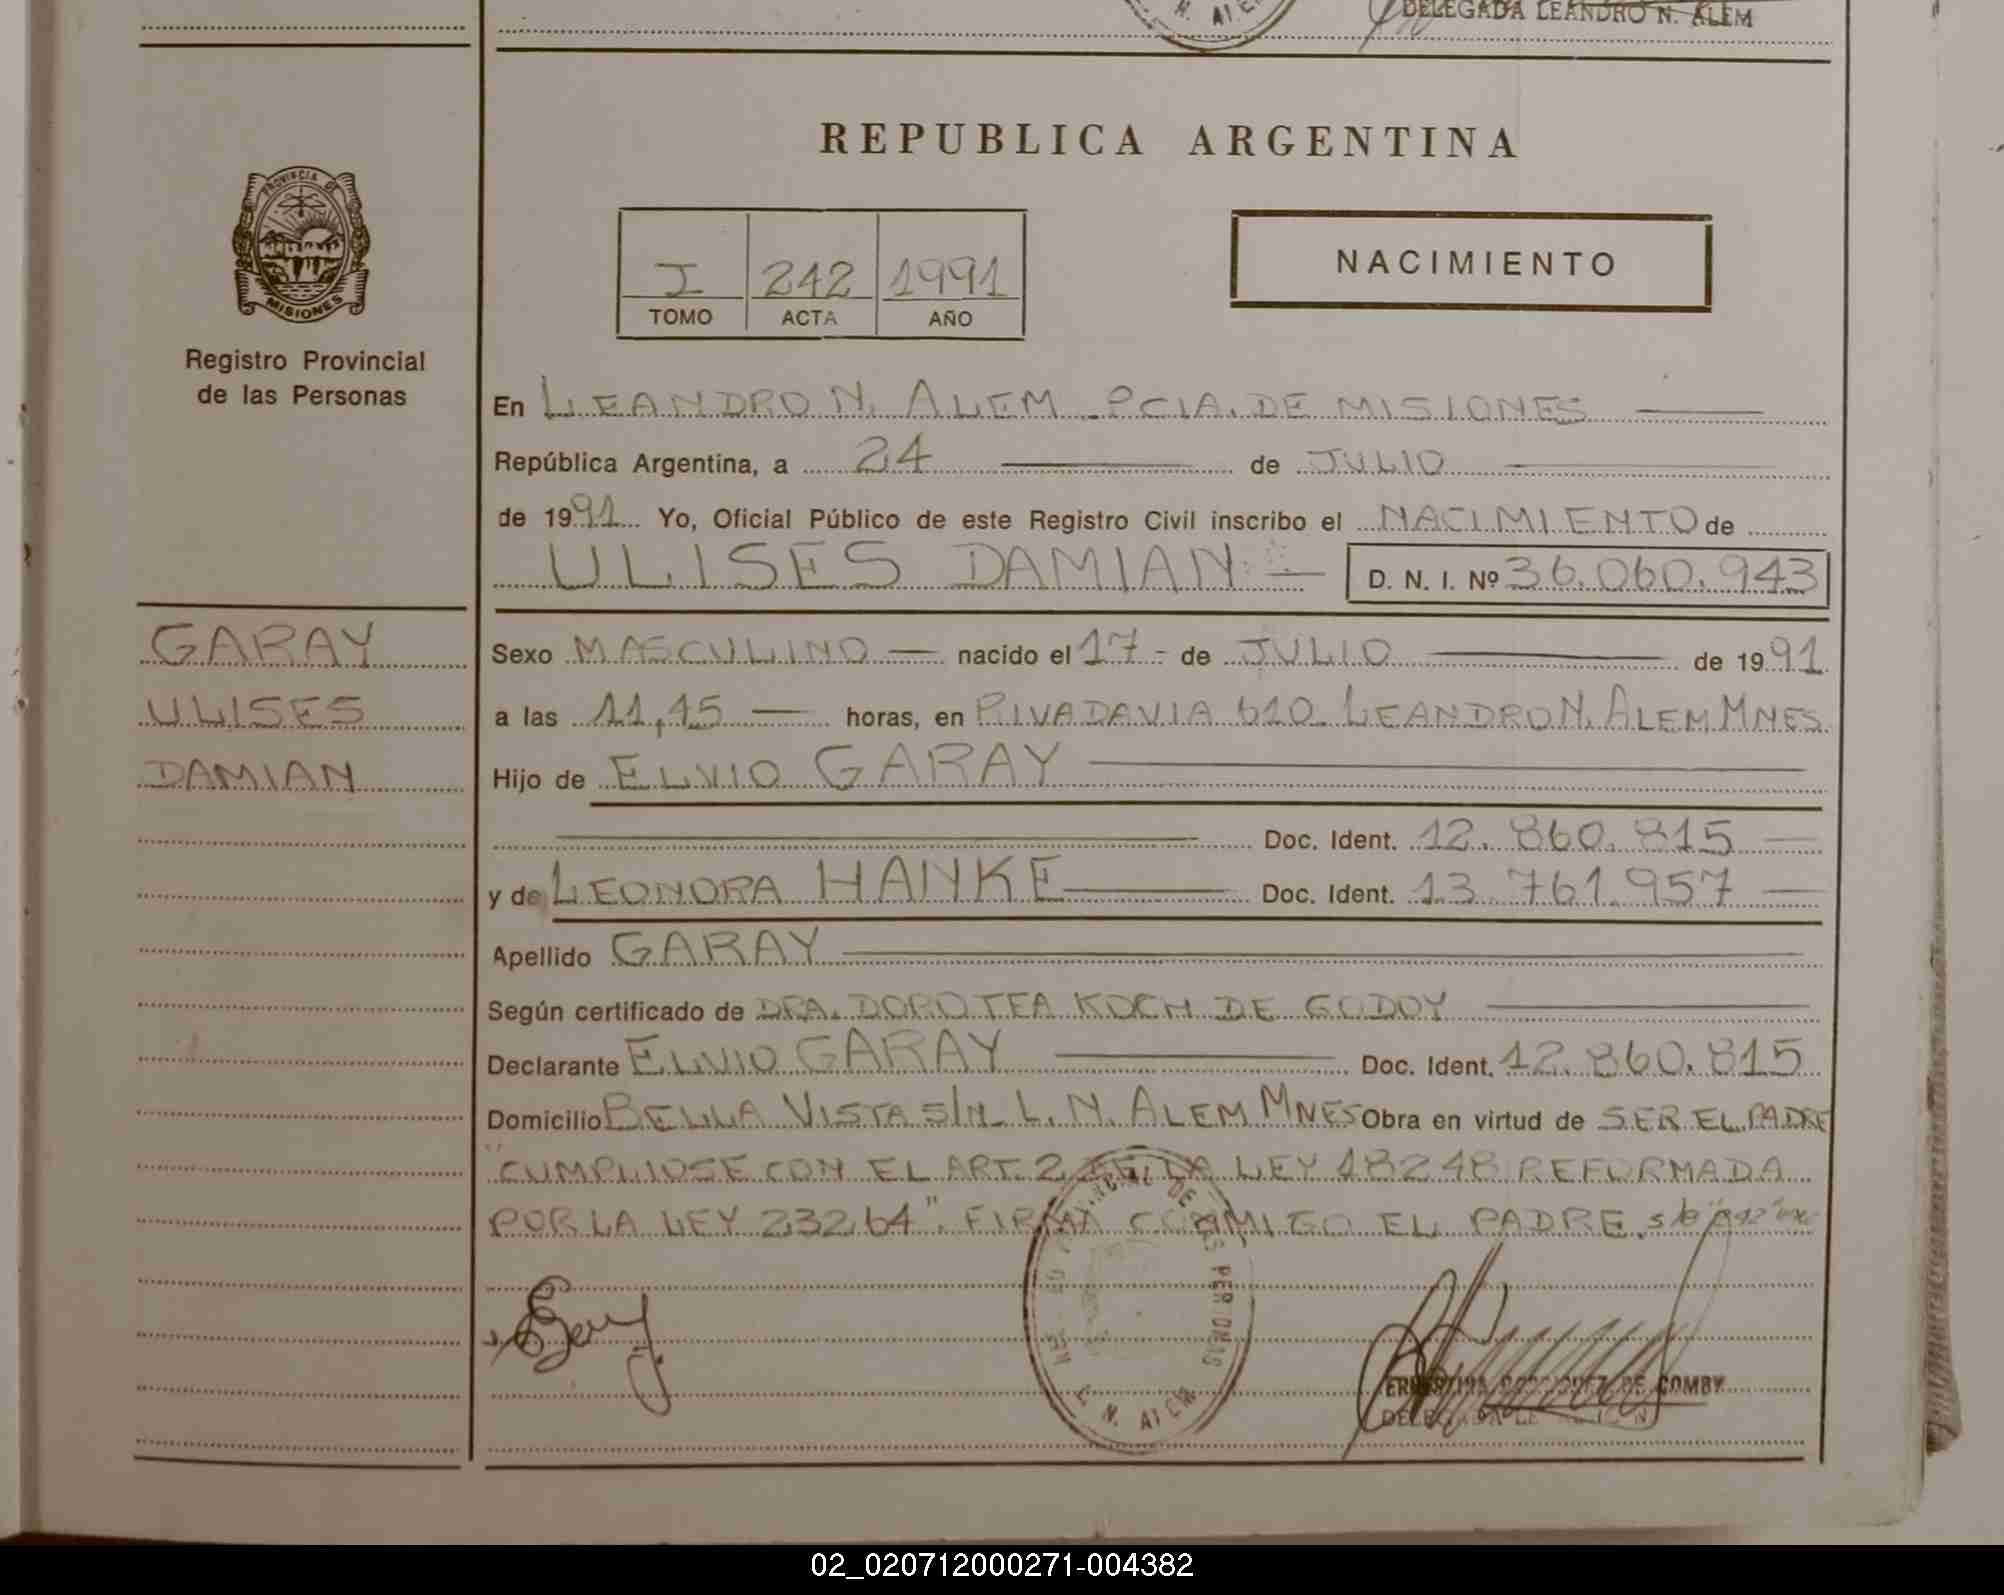 DELEGADA LEANDRO N. ALEM
N. ALEM
REPUBLICA ARGENTINA
PROVINCIA DE
MISIONES
Registro Provincial
de las Personas
I 242 1991
TOMO ACTA AÑO
NACIMIENTO
En LEANDRO N. ALEM PCIA. DE MISIONES
República Argentina, a 24 de JULIO
de 1991 Yo, Oficial Público de este Registro Civil inscribo el NACIMIENTO de
ULISES DAMIAN D. N. I. Nº 36.060.943
GARAY
ULISES
DAMIAN
Sexo MASCULINO nacido el 17 de JULIO de 1991
a las 11,15 horas, en RIVADAVIA 610 LEANDRO N. ALEM MNES.
Hijo de ELVIO GARAY
Doc. Ident. 12.860.815
y de LEONORA HANKE Doc. Ident. 13.761.957
Apellido GARAY
Según certificado de DRA. DOROTEA KOCH DE GODOY
Declarante ELVIO GARAY Doc. Ident. 12.860.815
Domicilio BELLA VISTA S/N L. N. ALEM MNES Obra en virtud de SER EL PADRE
"CUMPLIOSE CON EL ART. 2 DE LA LEY 18248 REFORMADA
POR LA LEY 23264". FIRMA CONMIGO EL PADRE.
PROVINCIAL DE LAS PERSONAS
L. N. ALEM
ERNESTINA RODRIGUEZ DE GOMBY
DELEGADA
02_020712000271-004382